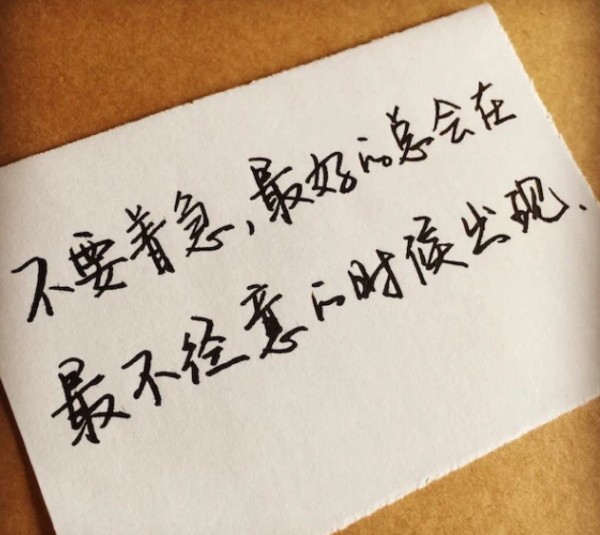 不要着急,最好的总会在
最不径意的时候出现.